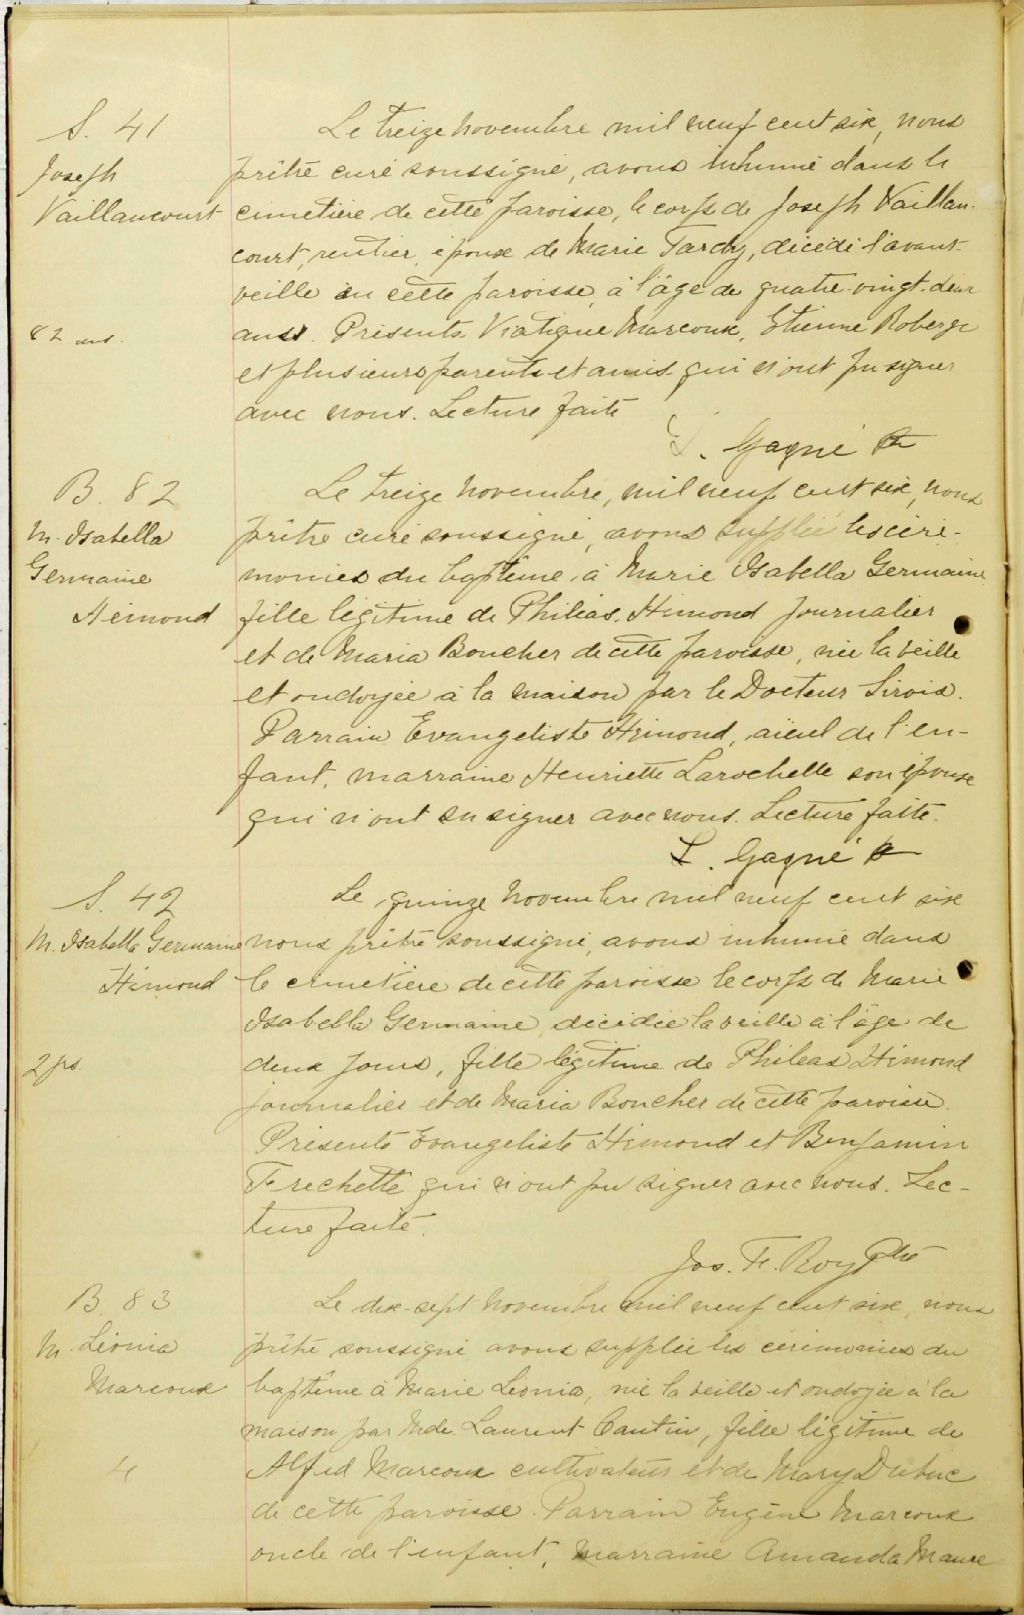 S. 41
Joseph
Vaillancourt
82 ans.
Le treize novembre mil neuf cent six, nous
prêtre curé soussigné, avons inhumé dans le
cimetière de cette paroisse, le corps de Joseph Vaillan-
court, rentier, époux de Marie Tardy, décédé l'avant-
veille en cette paroisse, à l'âge de quatre-vingt-deux
ans. Présents Viatique Marcoux, Etienne Roberge
et plusieurs parents et amis qui n'ont pu signer
avec nous. Lecture faite
L. Gagné Ptre
B. 82
M. Isabella
Germaine
Hémond
Le treize novembre, mil neuf cent six, nous
prêtre curé soussigné, avons supplié les céré-
monies du baptême, à Marie Isabella Germaine
fille légitime de Philéas Hémond journalier
et de Maria Boucher de cette paroisse, née la veille
et ondoyée à la maison par le Docteur Sirois.
Parrain Evangeliste Hémond, aïeul de l'en-
fant, marraine Henriette Larochelle son épouse
qui n'ont su signer avec nous. Lecture faite.
L. Gagné Ptre
S. 42
M. Isabella Germaine
Hémond
2 jrs.
Le quinze novembre mil neuf cent six
nous prêtre soussigné, avons inhumé dans
le cimetière de cette paroisse le corps de Marie
Isabella Germaine, décédée la veille à l'âge de
deux jours, fille légitime de Phileas Hémond
journalier et de Maria Boucher de cette paroisse.
Présents Evangeliste Hémond et Benjamin
Frechette qui n'ont pu signer avec nous. Lec-
ture faite.
Jos. F. Roy Ptre
B. 83
M. Léonia
Marcoux
4
Le dix-sept novembre mil neuf cent six, nous
prêtre soussigné avons supplée les cérémonies du
baptême à Marie Léonia, née la veille et ondoyée à la
maison par Mde. Laurent Cantin, fille légitime de
Alfred Marcoux cultivateur et de Mary Dubuc
de cette paroisse. Parrain Eugène Marcoux
oncle de l'enfant, marraine Amanda Maure